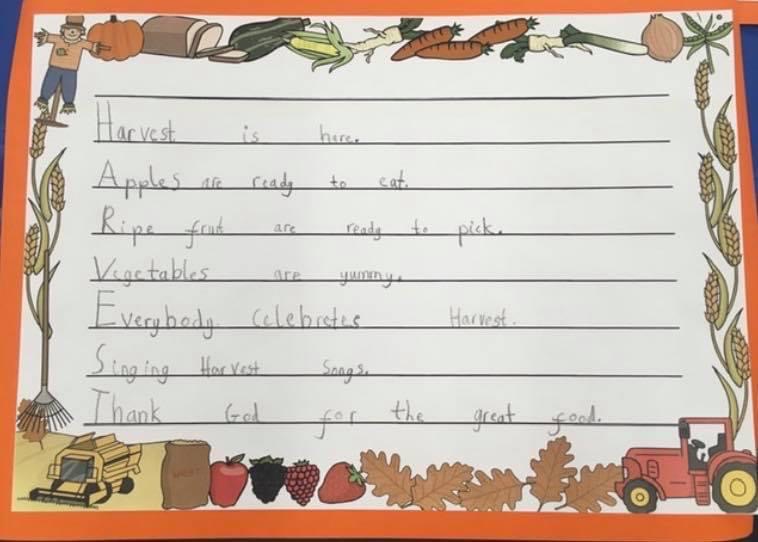 Harvest is here.
Apples are ready to eat.
Ripe fruit are ready to pick.
Vegetables are yummy.
Everybody celebretes Harvest.
Singing Harvest Snags.
Thank God for the great food.